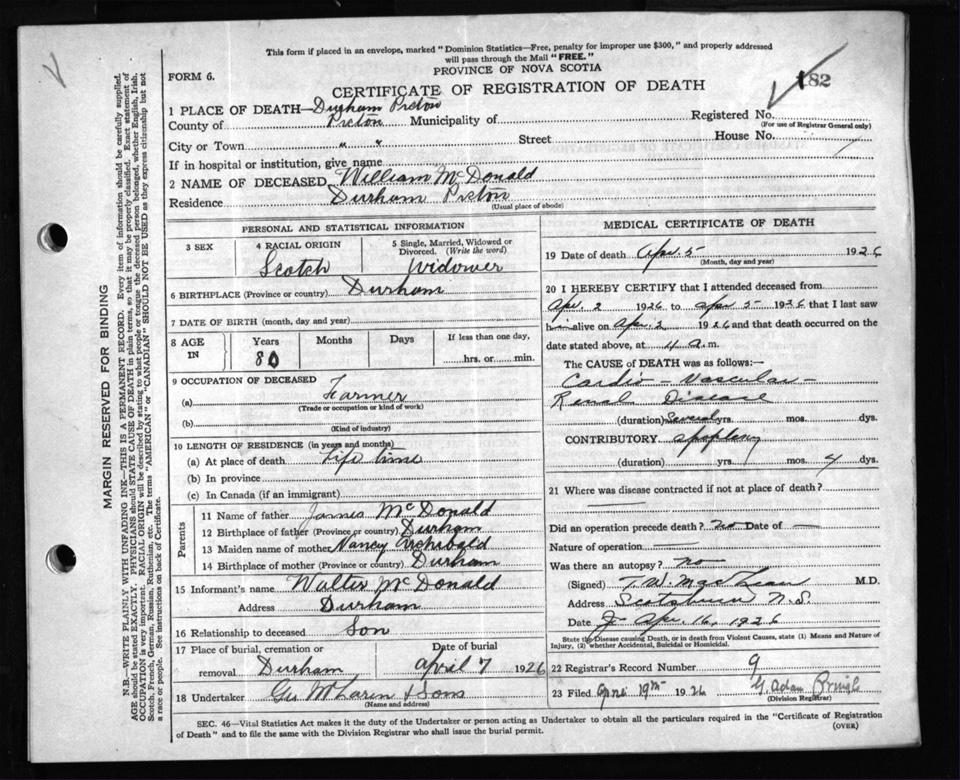 This form if placed in an envelope, marked "Dominion Statistics—Free, penalty for improper use $300," and properly addressed
will pass through the Mail "FREE."
PROVINCE OF NOVA SCOTIA
FORM 6.
CERTIFICATE OF REGISTRATION OF DEATH
182
1 PLACE OF DEATH—Durham Pictou
Registered No.
(For use of Registrar General only)
County of Pictou Municipality of
City or Town " " Street House No.
If in hospital or institution, give name
2 NAME OF DECEASED William McDonald
Residence Durham Pictou
(Usual place of abode)
PERSONAL AND STATISTICAL INFORMATION
3 SEX
4 RACIAL ORIGIN
Scotch
5 Single, Married, Widowed or
Divorced. (Write the word)
Widower
6 BIRTHPLACE (Province or country) Durham
7 DATE OF BIRTH (month, day and year)
8 AGE
IN
Years
80
Months
Days
If less than one day,
hrs. or min.
9 OCCUPATION OF DECEASED
(a) Farmer
(Trade or occupation or kind of work)
(b)
(Kind of industry)
10 LENGTH OF RESIDENCE (in years and months)
(a) At place of death Life time
(b) In province
(c) In Canada (if an immigrant)
Parents
11 Name of father James McDonald
12 Birthplace of father (Province or country) Durham
13 Maiden name of mother Nancy Archibald
14 Birthplace of mother (Province or country) Durham
15 Informant's name Walter McDonald
Address Durham
16 Relationship to deceased Son
17 Place of burial, cremation or
removal Durham
Date of burial
April 7 1926
18 Undertaker Geo McLaren & Sons
(Name and address)
MEDICAL CERTIFICATE OF DEATH
19 Date of death Apr. 5 1926
(Month, day and year)
20 I HEREBY CERTIFY that I attended deceased from
Apr. 2 1926 to Apr 5 1926 that I last saw
him alive on Apr. 2 1926 and that death occurred on the
date stated above, at 4 a.m.
The CAUSE of DEATH was as follows:—
Cardio-Vascular-
Renal Disease
(duration) Several yrs. mos. dys.
CONTRIBUTORY Apoplexy
(duration) yrs. mos. 4 dys.
21 Where was disease contracted if not at place of death?
Did an operation precede death? No Date of —
Nature of operation —
Was there an autopsy? No
(Signed) T.W. MacLean M.D.
Address Scotsburn N.S.
Date Apr 16, 1926
State the Disease causing Death, or in death from Violent Causes, state (1) Means and Nature of
Injury, (2) whether Accidental, Suicidal or Homicidal.
22 Registrar's Record Number 9
23 Filed April 19th 1926 Adam Pringle
(Division Registrar)
SEC. 46—Vital Statistics Act makes it the duty of the Undertaker or person acting as Undertaker to obtain all the particulars required in the "Certificate of Registration
of Death" and to file the same with the Division Registrar who shall issue the burial permit.
(OVER)
MARGIN RESERVED FOR BINDING
N.B.—WRITE PLAINLY WITH UNFADING INK—THIS IS A PERMANENT RECORD. Every item of information should be carefully supplied.
AGE should be stated EXACTLY. PHYSICIANS should STATE CAUSE OF DEATH in plain terms, so that it may be properly classified. Exact statement of
OCCUPATION is very important. RACIAL ORIGIN will be described by stating to what people or tongue the deceased person belonged, whether English, Irish,
Scotch, French, German, Russian, Ruthenian, etc. The terms "AMERICAN" or "CANADIAN" SHOULD NOT BE USED as they express citizenship but not
a race or people. See instructions on back of Certificate.